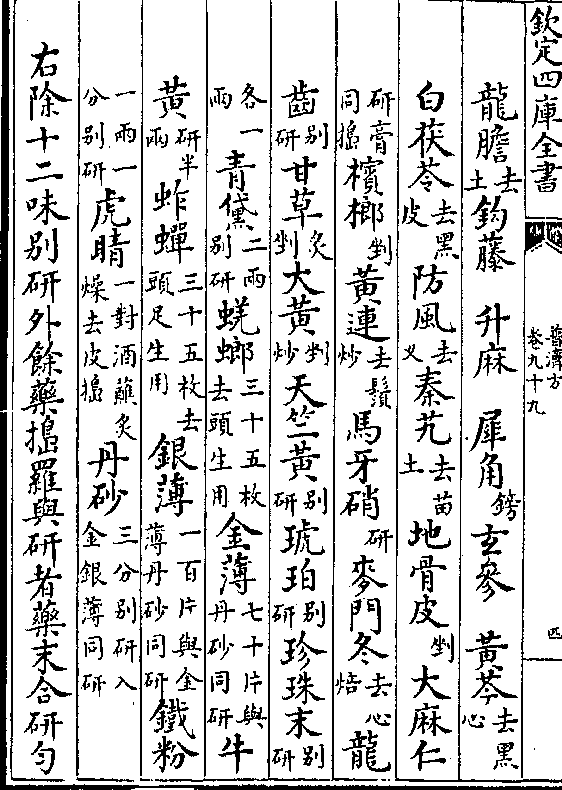 欽定四庫全書
普濟方
卷九十九
四
龍膽去土鈎藤 升麻 犀角鎊玄參 黃芩去黑心
白茯苓去黑皮防風去叉秦艽去苗土地骨皮剉大麻仁
研膏同搗檳榔剉黃連去鬚炒馬牙硝研麥門冬去心焙龍
齒别研甘草炙剉大黃剉炒天竺黃别研琥珀别研珍珠末别研
各一兩青黛二兩别研蜣螂三十五枚去頭生用金薄七十片與丹砂同研牛
黃研半兩蚱蟬三十五枚去頭足生用銀薄一百片與金薄丹砂同研鐵粉
一兩一分别研虎睛一對酒蘸炙燥去皮搗丹砂三分别研入金銀薄同研
右除十二味别研外餘藥搗羅與研者藥末合研勻